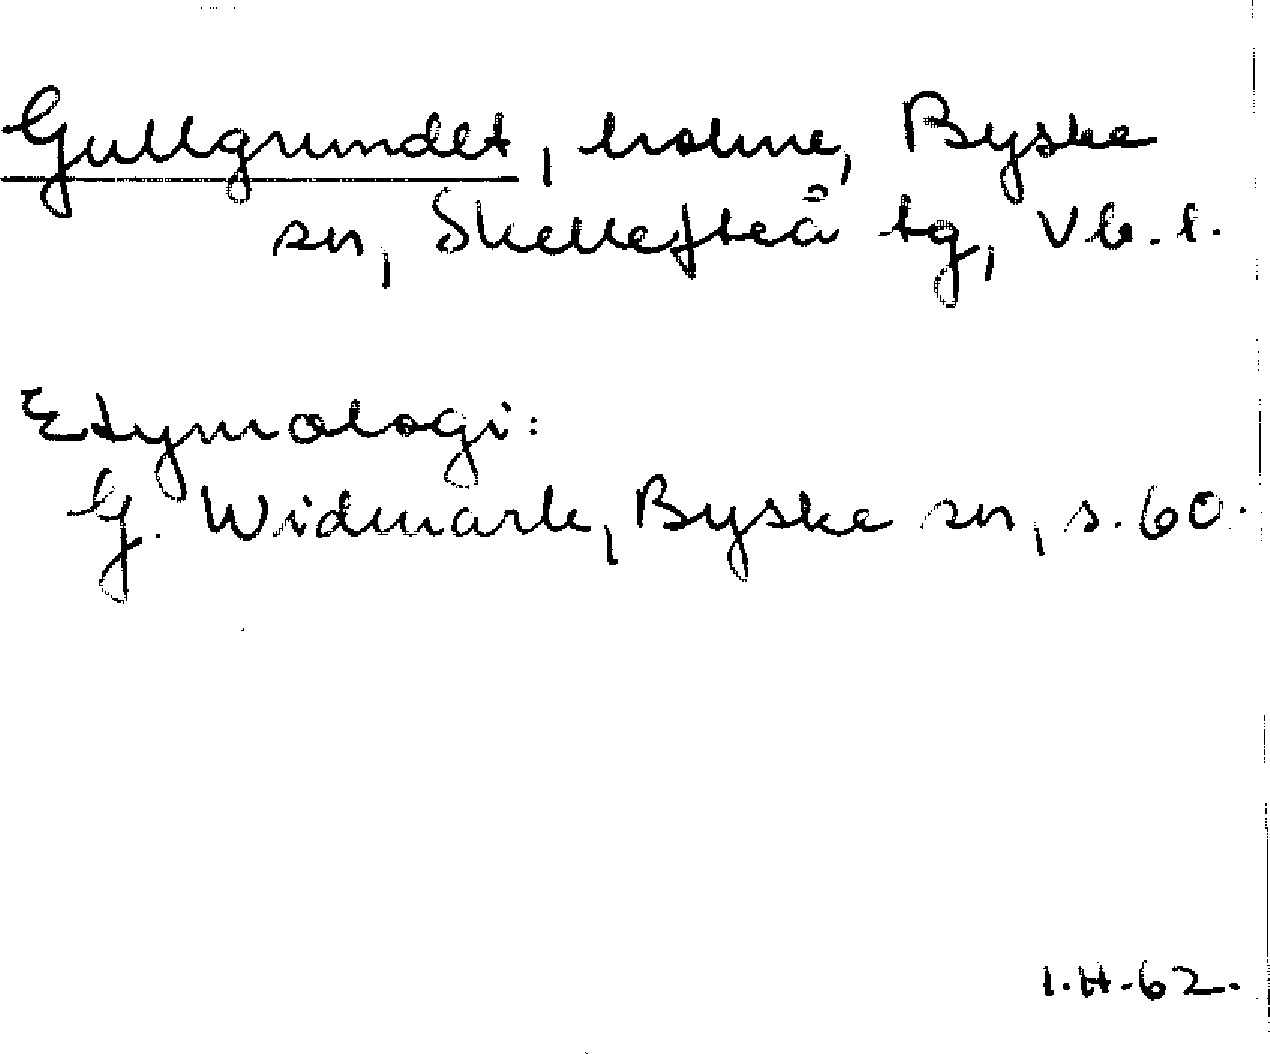 Gullgrundet, holme, Byske
sn, Skellefteå tg, Vb. l.
Etymologi:
G. Widmark, Byske sn, s. 60.
I.H.62.